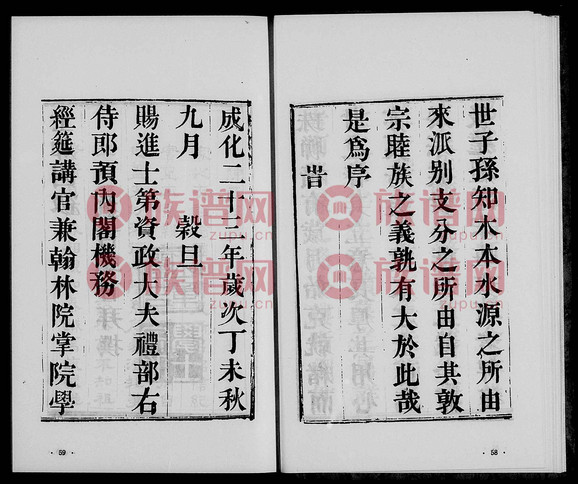 世子孫知木本水源之所由
來派別支分之所由自其敦
宗睦族之義孰有大於此哉
是爲序
旹
· 58 ·
成化二十三年歲次丁未秋
九月　穀旦
賜進士第資政大夫禮部右
侍郎預內閣機務
經筵講官兼翰林院掌院學
· 59 ·
族谱网
zupu.cn
族谱网
zupu.cn
族谱网
zupu.cn
族谱网
zupu.cn